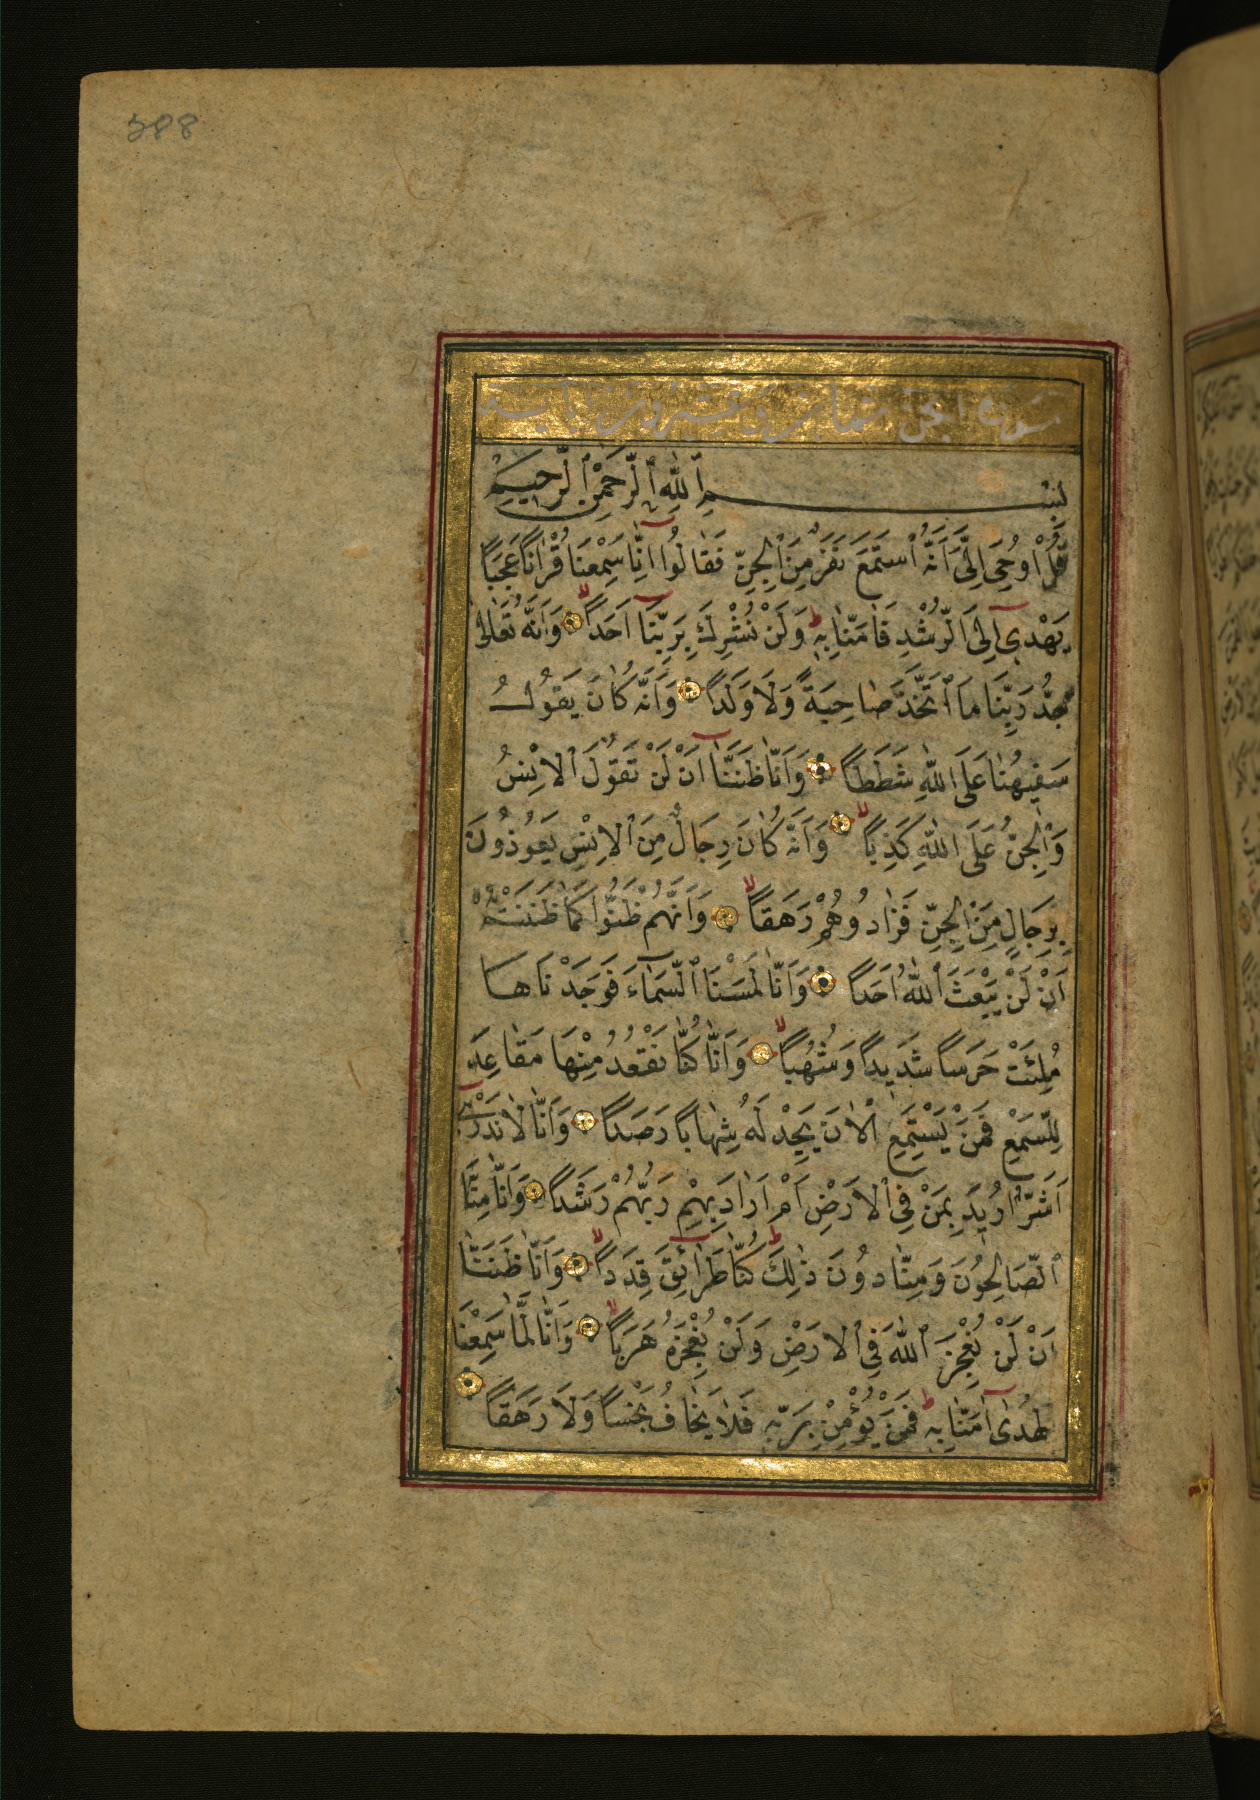 388
سورة الجن ثمان وعشرون اية
بسم الله الرحمن الرحيم
قُلْ اُوحِىَ اِلَىَّ اَنَّهُ اسْتَمَعَ نَفَرٌ مِنَ الْجِنِّ فَقَالُوا اِنَّا سَمِعْنَا قُرْاٰنًا عَجَبًا
يَهْدِى اِلَى الرُّشْدِ فَاٰمَنَّا بِهِ وَلَنْ نُشْرِكَ بِرَبِّنَا اَحَدًا وَاَنَّهُ تَعَالٰى
جَدُّ رَبِّنَا مَا اتَّخَذَ صَاحِبَةً وَلَا وَلَدًا وَاَنَّهُ كَانَ يَقُولُ
سَفِيهُنَا عَلَى اللهِ شَطَطًا وَاَنَّا ظَنَنَّا اَنْ لَنْ تَقُولَ الْاِنْسُ
وَالْجِنُّ عَلَى اللهِ كَذِبًا وَاَنَّهُ كَانَ رِجَالٌ مِنَ الْاِنْسِ يَعُوذُونَ
بِرِجَالٍ مِنَ الْجِنِّ فَزَادُوهُمْ رَهَقًا وَاَنَّهُمْ ظَنُّوا كَمَا ظَنَنْتُمْ
اَنْ لَنْ يَبْعَثَ اللهُ اَحَدًا وَاَنَّا لَمَسْنَا السَّمَاءَ فَوَجَدْنَاهَا
مُلِئَتْ حَرَسًا شَدِيدًا وَشُهُبًا وَاَنَّا كُنَّا نَقْعُدُ مِنْهَا مَقَاعِدَ
لِلسَّمْعِ فَمَنْ يَسْتَمِعِ الْاٰنَ يَجِدْ لَهُ شِهَابًا رَصَدًا وَاَنَّا لَا نَدْرِى
اَشَرٌّ اُرِيدَ بِمَنْ فِى الْاَرْضِ اَمْ اَرَادَ بِهِمْ رَبُّهُمْ رَشَدًا وَاَنَّا مِنَّا
الصَّالِحُونَ وَمِنَّا دُونَ ذٰلِكَ كُنَّا طَرَائِقَ قِدَدًا وَاَنَّا ظَنَنَّا
اَنْ لَنْ نُعْجِزَ اللهَ فِى الْاَرْضِ وَلَنْ نُعْجِزَهُ هَرَبًا وَاَنَّا لَمَّا سَمِعْنَا
الْهُدٰى اٰمَنَّا بِهِ فَمَنْ يُؤْمِنْ بِرَبِّهِ فَلَا يَخَافُ بَخْسًا وَلَا رَهَقًا